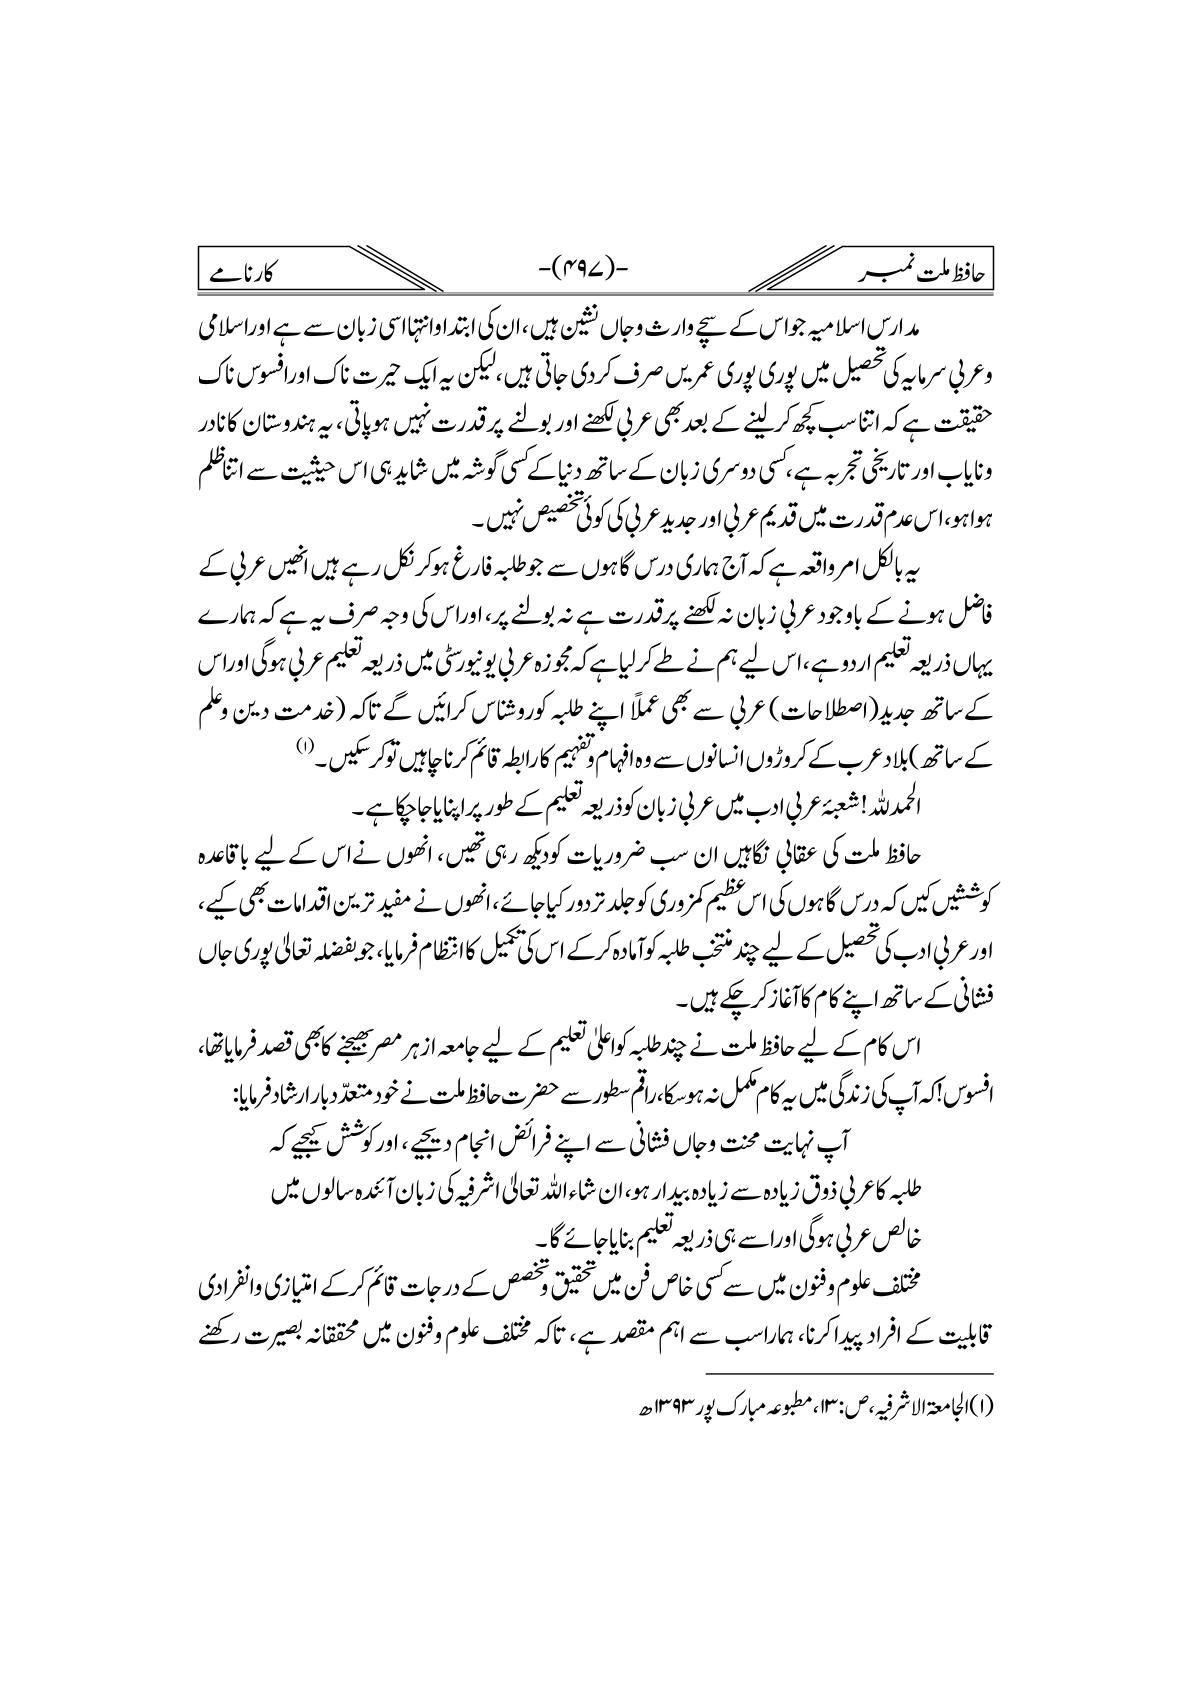 حافظ ملت نمبر
-(۴۹۷)-
کارنامے
مدارس اسلامیہ جو اس کے سچے وارث و جاں نشین ہیں، ان کی ابتدا و انتہا اسی زبان سے ہے اور اسلامی
و عربی سرمایہ کی تحصیل میں پوری پوری عمریں صرف کر دی جاتی ہیں، لیکن یہ ایک حیرت ناک اور افسوس ناک
حقیقت ہے کہ اتنا سب کچھ کر لینے کے بعد بھی عربی لکھنے اور بولنے پر قدرت نہیں ہو پاتی، یہ ہندوستان کا نادر
و نایاب اور تاریخی تجربہ ہے، کسی دوسری زبان کے ساتھ دنیا کے کسی گوشہ میں شاید ہی اس حیثیت سے اتنا ظلم
ہوا ہو، اس عدم قدرت میں قدیم عربی اور جدید عربی کی کوئی تخصیص نہیں۔
یہ بالکل امر واقعہ ہے کہ آج ہماری درس گاہوں سے جو طلبہ فارغ ہو کر نکل رہے ہیں انھیں عربی کے
فاضل ہونے کے باوجود عربی زبان نہ لکھنے پر قدرت ہے نہ بولنے پر، اور اس کی وجہ صرف یہ ہے کہ ہمارے
یہاں ذریعہ تعلیم اردو ہے، اس لیے ہم نے طے کر لیا ہے کہ مجوزہ عربی یونیورسٹی میں ذریعہ تعلیم عربی ہوگی اور اس
کے ساتھ جدید (اصطلاحات) عربی سے بھی عملاً اپنے طلبہ کو روشناس کرائیں گے تاکہ (خدمت دین و علم
کے ساتھ) بلاد عرب کے کروڑوں انسانوں سے وہ افہام و تفہیم کا رابطہ قائم کرنا چاہیں تو کر سکیں۔(۱)
الحمد للہ! شعبۂ عربی ادب میں عربی زبان کو ذریعہ تعلیم کے طور پر اپنایا جا چکا ہے۔
حافظ ملت کی عقابی نگاہیں ان سب ضروریات کو دیکھ رہی تھیں، انھوں نے اس کے لیے باقاعدہ
کوششیں کیں کہ درس گاہوں کی اس عظیم کمزوری کو جلد تر دور کیا جائے، انھوں نے مفید ترین اقدامات بھی کیے،
اور عربی ادب کی تحصیل کے لیے چند منتخب طلبہ کو آمادہ کر کے اس کی تکمیل کا انتظام فرمایا، جو بفضلہ تعالیٰ پوری جاں
فشانی کے ساتھ اپنے کام کا آغاز کر چکے ہیں۔
اس کام کے لیے حافظ ملت نے چند طلبہ کو اعلیٰ تعلیم کے لیے جامعہ ازہر مصر بھیجنے کا بھی قصد فرمایا تھا،
افسوس! کہ آپ کی زندگی میں یہ کام مکمل نہ ہو سکا، راقم سطور سے حضرت حافظ ملت نے خود متعدّد بار ارشاد فرمایا:
آپ نہایت محنت و جاں فشانی سے اپنے فرائض انجام دیجیے، اور کوشش کیجیے کہ
طلبہ کا عربی ذوق زیادہ سے زیادہ بیدار ہو، ان شاء اللہ تعالیٰ اشرفیہ کی زبان آئندہ سالوں میں
خالص عربی ہوگی اور اسے ہی ذریعہ تعلیم بنایا جائے گا۔
مختلف علوم و فنون میں سے کسی خاص فن میں تحقیق و تخصص کے درجات قائم کر کے امتیازی و انفرادی
قابلیت کے افراد پیدا کرنا، ہمارا سب سے اہم مقصد ہے، تاکہ مختلف علوم و فنون میں محققانہ بصیرت رکھنے
(۱) الجامعۃ الاشرفیہ، ص: ۱۳، مطبوعہ مبارک پور ۱۳۹۳ھ